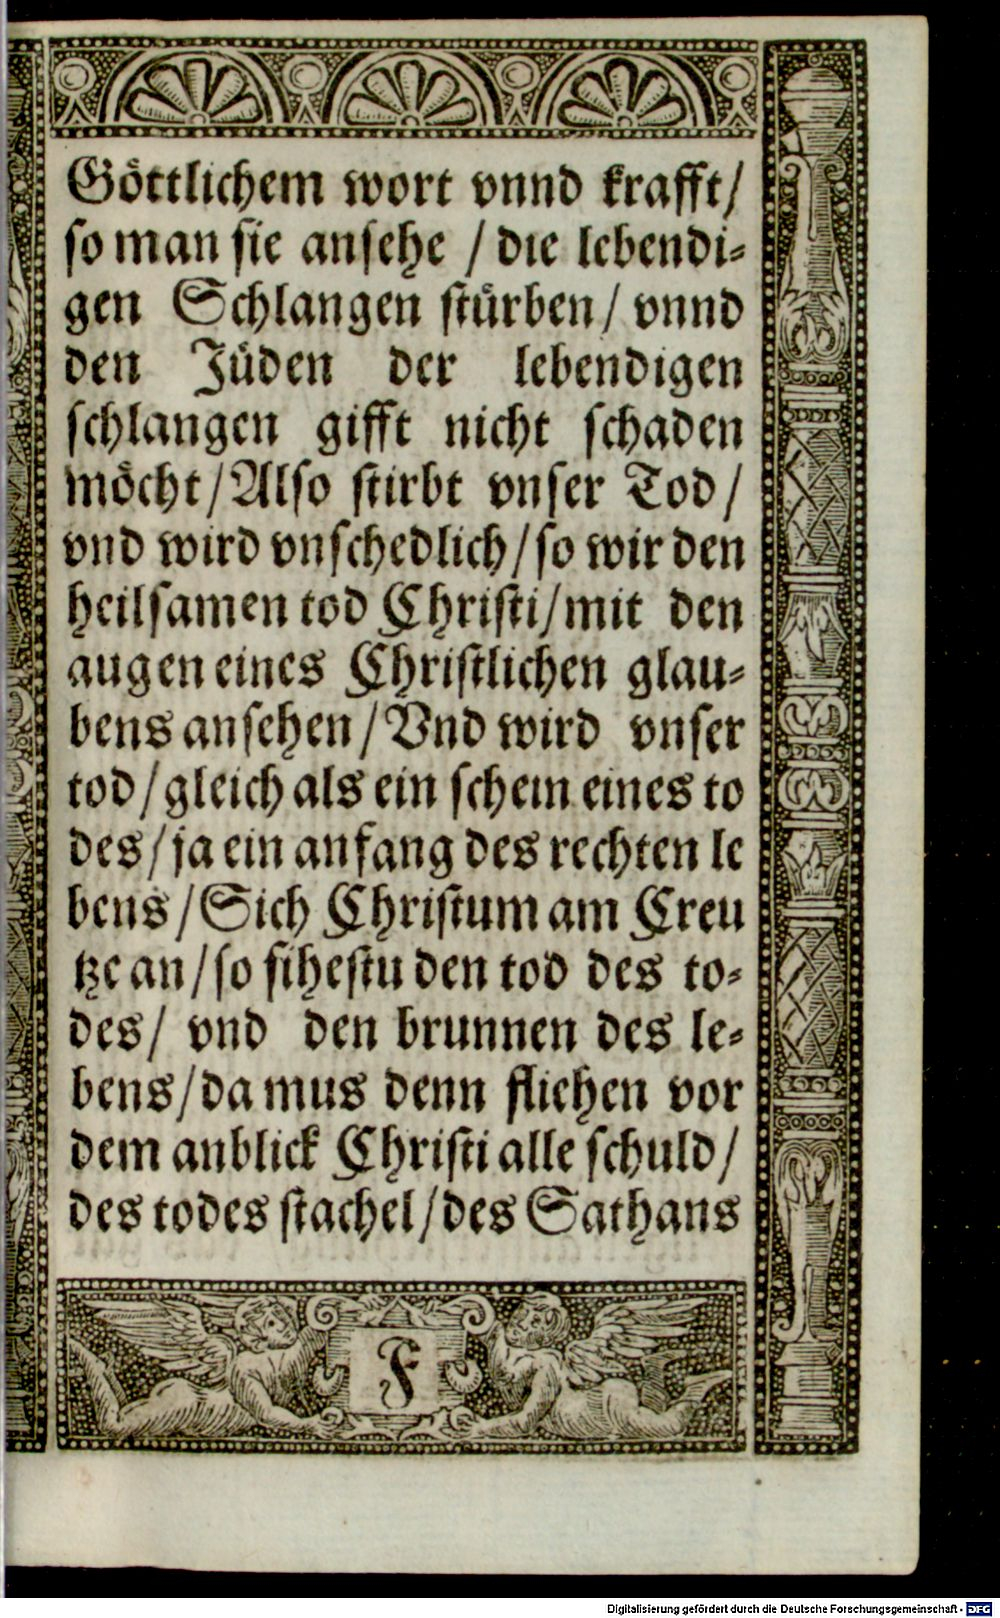 Göttlichem wort vnnd krafft/
so man sie ansehe / die lebendi-
gen Schlangen stürben/ vnnd
den Jüden der lebendigen
schlangen gifft nicht schaden
möcht/Also stirbt vnser Tod/
vnd wird vnschedlich/so wir den
heilsamen tod Christi/mit den
augen eines Christlichen glau-
bens ansehen/Vnd wird vnser
tod/gleich als ein schein eines to
des/ja ein anfang des rechten le
bens/Sich Christum am Creu
tze an/so sihestu den tod des to-
des/ vnd den brunnen des le-
bens/da mus denn fliehen vor
dem anblick Christi alle schuld/
des todes stachel/des Sathans
F
Digitalisierung gefördert durch die Deutsche Forschungsgemeinschaft - DFG